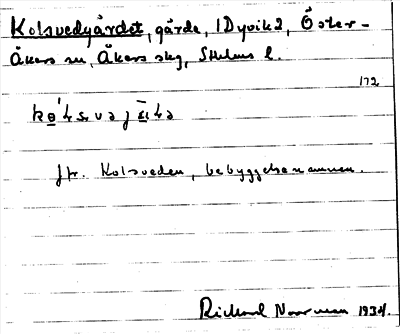 Kolsvedgärdet, gärde, 1 Dyvik 2, Öster-
Åkers sn, Åkers skg, Sthlms l.
172
jfr. Kolsveden, bebyggelsenamnen.
Rickard Norrman 1934.